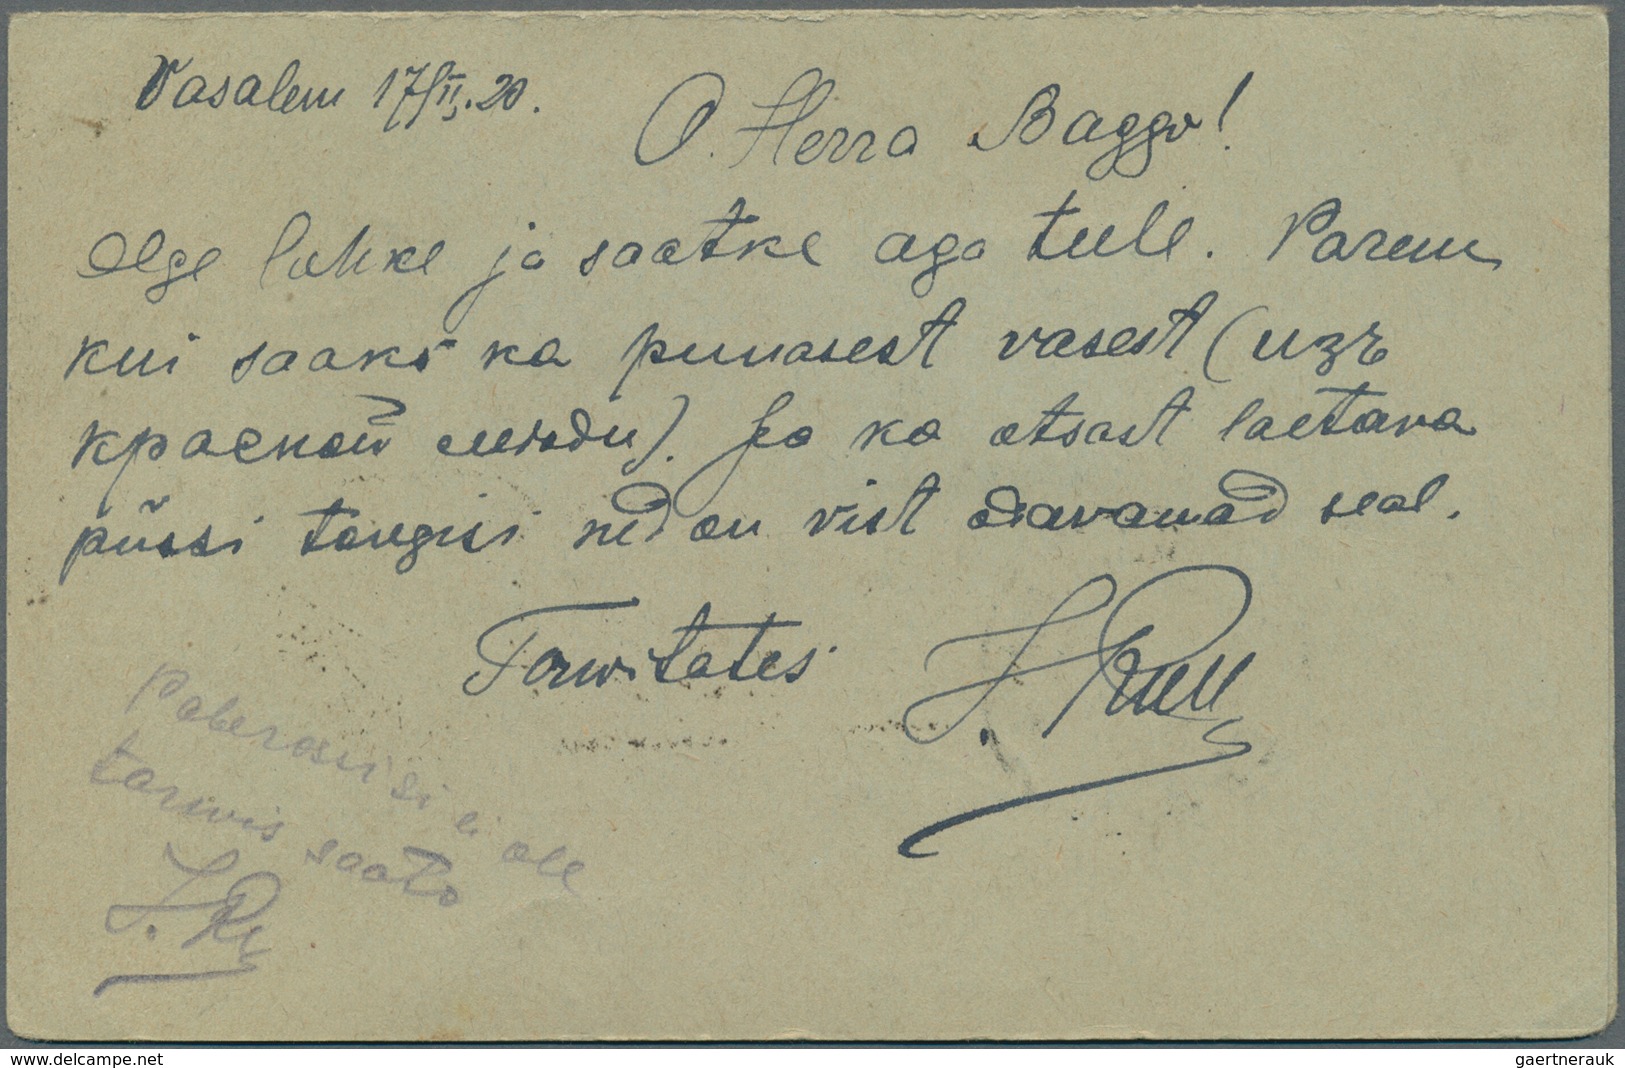 Vasalem 17/II.20.
O. Herra Baggo!
Olge lahke ja saatke aga tule. Parem
kui saaks ka punasest vasest (изъ
красной мѣди). Ja ka otsast laetava
püssi tongisi ned on vist odavamad seal.
Terwitates
J.
Paberossisi ei ole
tarwis saata
J.
gaertnerauk